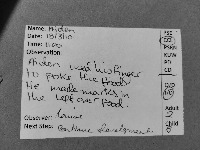 Name: Aiden
Date: 13/3/10
Time: 11.00
Observation:
Aiden used his finger
to poke the food
He made marks in
the left over food.
Observer:
Next Step: Continue Development
PSE
CLL
PSRN
KUW
PD
CD
Adult
Child